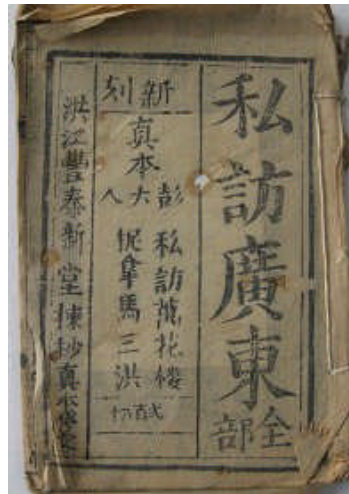 私訪廣東全部
新刻
真本
彭大人
私訪萬花樓
捉拿馬三洪
洪江豐泰新堂揀抄真本